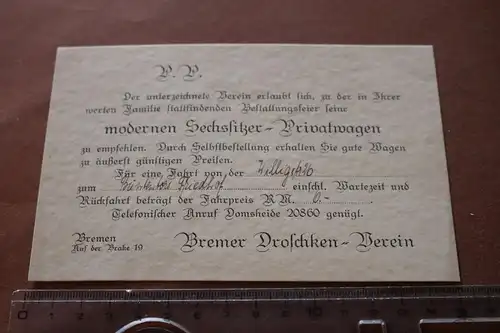 P. P.
Der unterzeichnete Verein erlaubt sich, zu der in Ihrer
werten Familie stattfindenden Bestattungsfeier seine
modernen Sechssitzer-Privatwagen
zu empfehlen. Durch Selbstbestellung erhalten Sie gute Wagen
zu äußerst günstigen Preisen.
Für eine Fahrt von der
zum einschl. Wartezeit und
Rückfahrt beträgt der Fahrpreis RM.
Telefonischer Anruf Domsheide 20860 genügt.
Bremen
Auf der Brake 19
Bremer Droschken-Verein
0 1 2 3 4 5 6 7 8 9 10 11 12 13 14 15